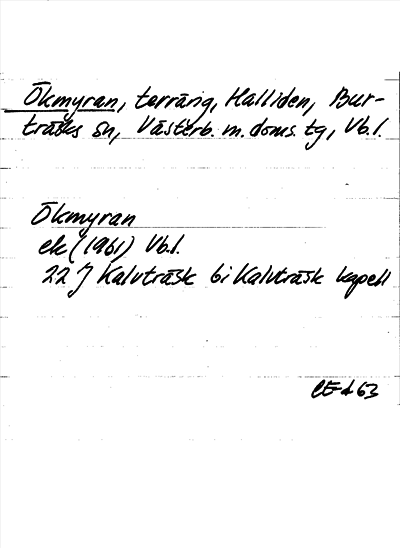 Ökmyran, terräng, Halliden, Bur-
träsks sn, Västerb. m. doms. tg, Vb. l.
Ökmyran
ek (1961) Vb. l.
22 J Kalvträsk bi Kalvträsk kapell
63